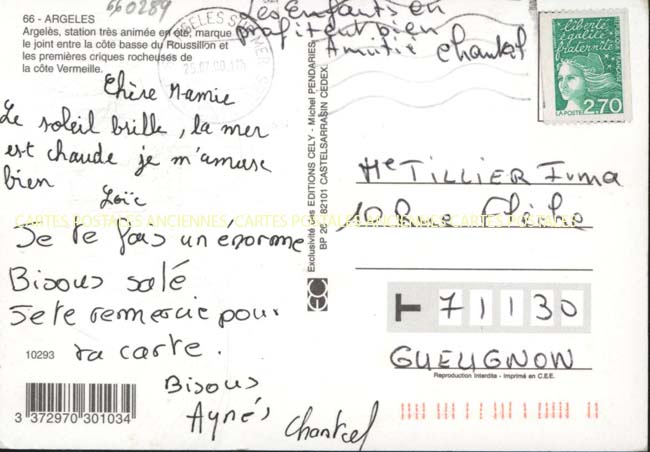 660289
66 - ARGELES
Argelès, station très animée en été, marque
le joint entre la côte basse du Roussillon et
les premières criques rocheuses de
la côte Vermeille.
Les Enfants en
profitent bien
Amitié Chantal
liberté
égalité
fraternité
RÉPUBLIQUE FRANÇAISE
LA POSTE
2,70
Chère Mamie
Le soleil brille, la mer
est chaude je m'amuse
bien
Loïc
Je te fais un énorme
Bisous salé
Je te remercie pour
ta carte.
Bisous
Agnés
Chantal
Exclusivité des EDITIONS CELY - Michel PENDARIES
82101 CASTELSARRASIN CEDEX
Me TILLIER Irma
10 Rue
T 71130
GUEUGNON
Reproduction Interdite - Imprimé en C.E.E.
10293
3 372970 301034
CARTES POSTALES ANCIENNES, CARTES POSTALES ANCIENNES, CARTES POSTALES ANCIENNES